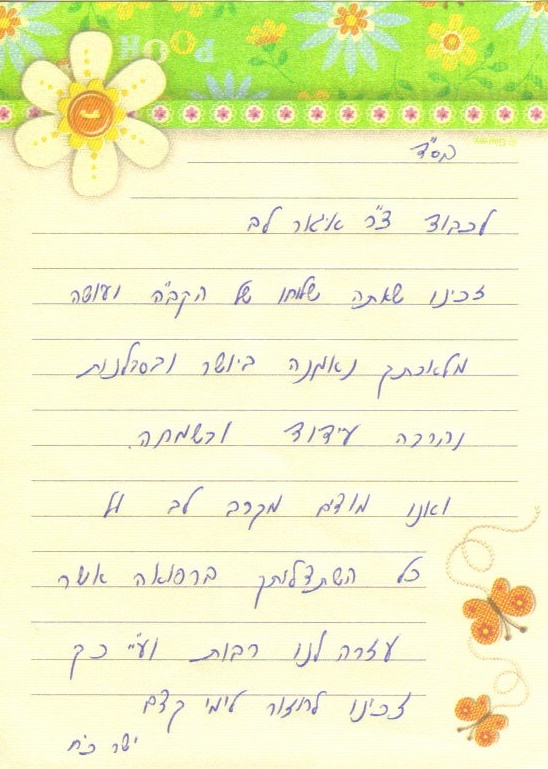 POOH
© Disney
בס"ד
לכבוד ד"ר איגור לב
זכינו שאתה שלוחו של הקב"ה ועושה
מלאכתך נאמנה ביושר ובסבלנות
והרבה עידוד ובשמחה.
ואנו מודים מקרב לב על
כל השתדלותך ברפואה אשר
עזרה לנו רבות וע"י כך
זכינו לחזור לימי קדם
ישר כח